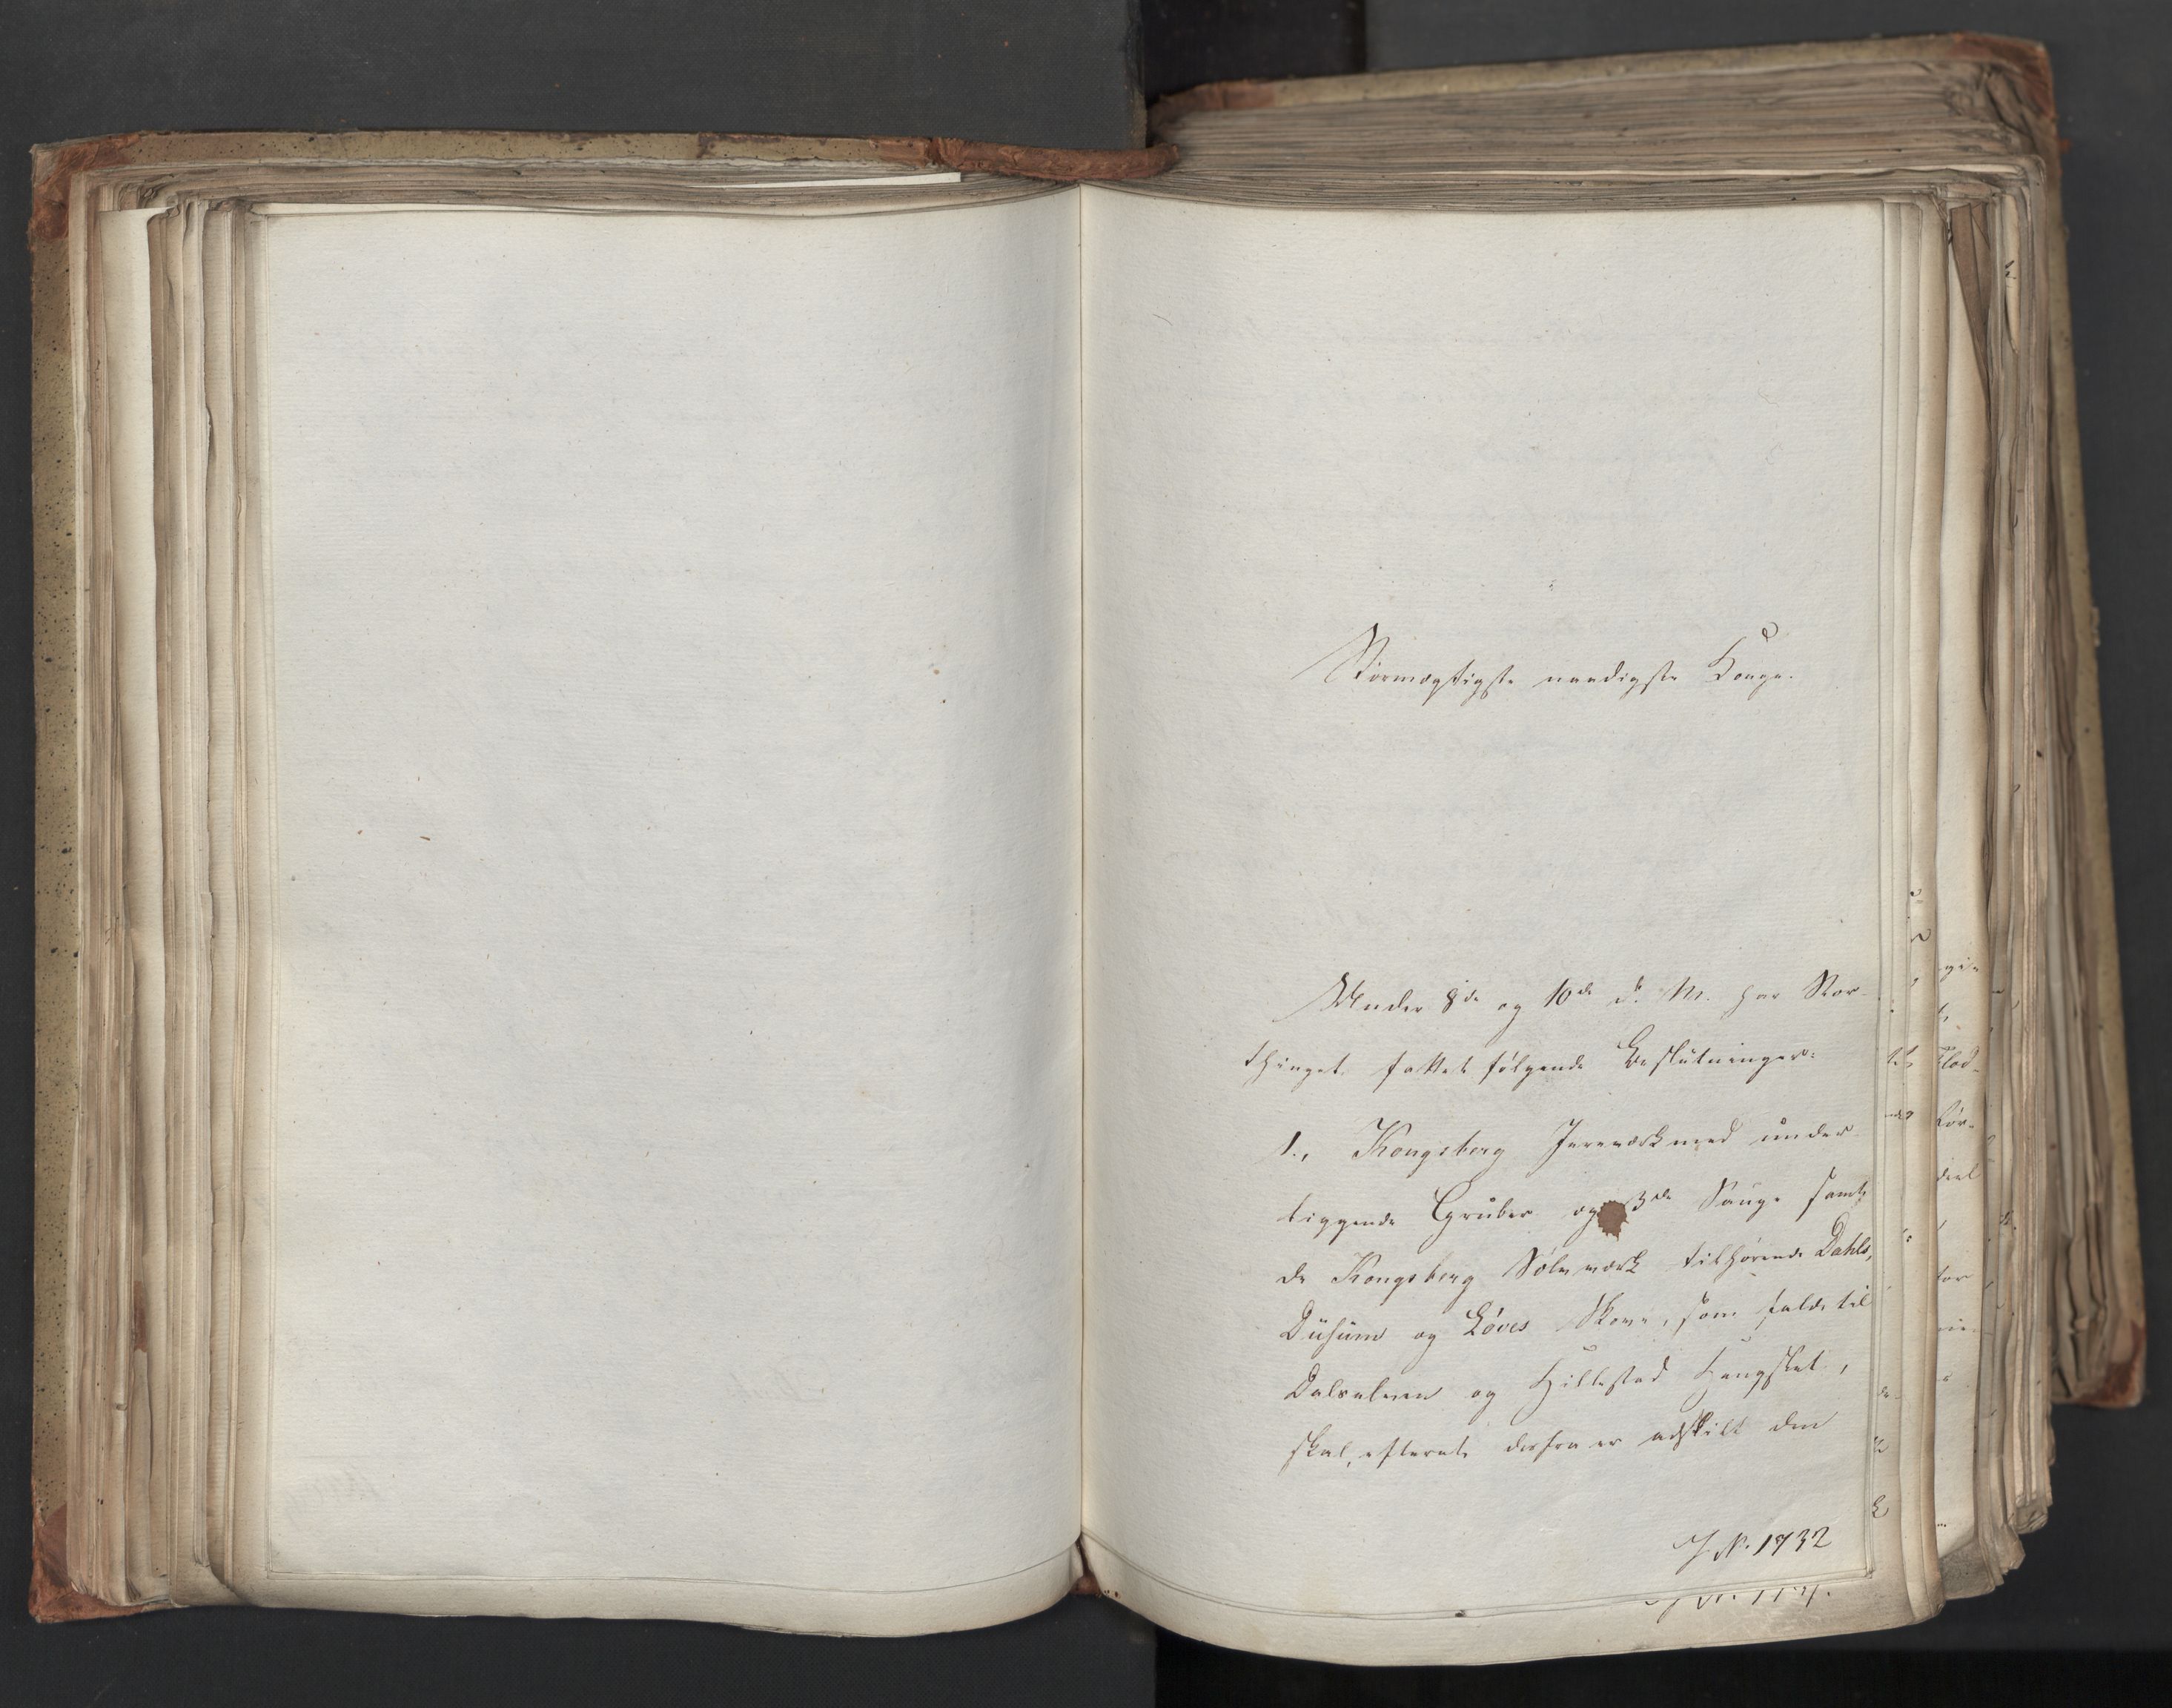 Stormægtigste naadigste Konge.
Under 8de og 10de d. M. har Stor-
thinget fattet følgende Beslutninger:
1., Kongsberg Jernværk med under-
liggende Gruber og 3de Sauge samt
de Kongsberg Sølvværk tilhørende Dahls,
Düsüms og Løves Skove, som falde til
Dalselven og Hillestad Hengslet,
skal, efterat derfra er adskilt den
J N. 1732